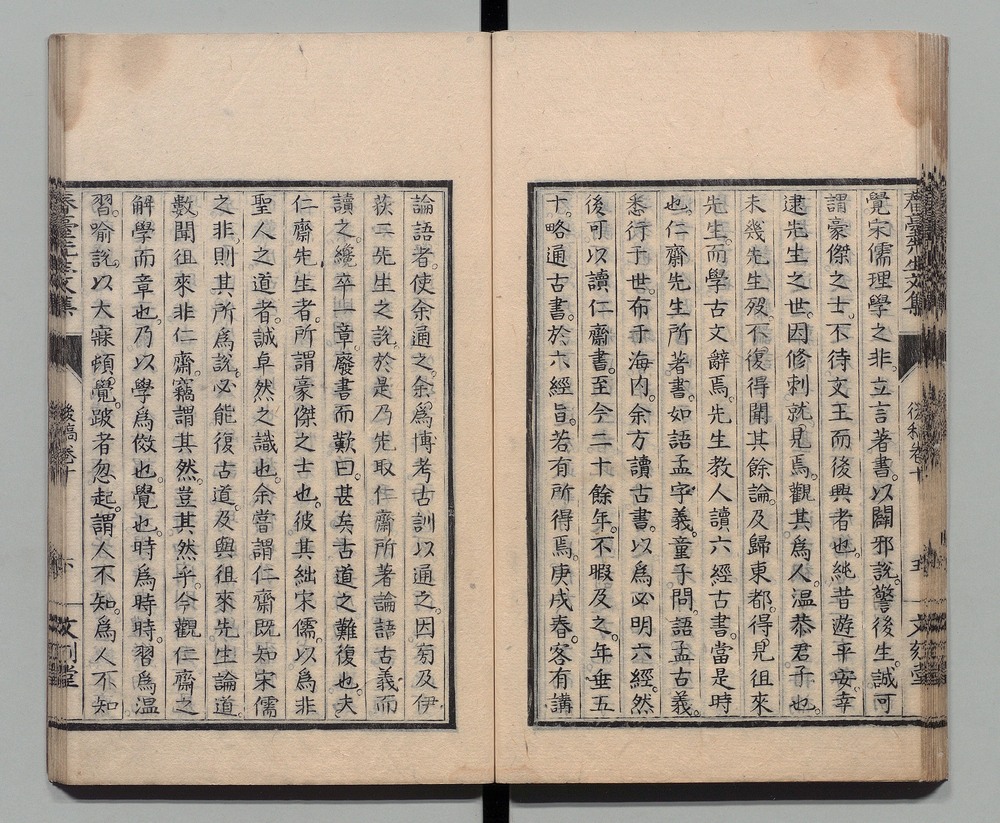 春臺先生文集
後稿卷十
五
文刻堂
覺宋儒理學之非。立言著書。以闢邪說。警後生。誠可
謂豪傑之士。不待文王而後興者也。純昔遊平安。幸
逮先生之世。因修刺就見焉。觀其為人。溫恭君子也。
未幾先生歿。不復得聞其餘論。及歸東都。得見徂來
先生。而學古文辭焉。先生教人讀六經古書。當是時
也。仁齋先生所著書。如語孟字義。童子問。語孟古義。
悉行于世。布于海內。余方讀古書。以為必明六經。然
後可以讀仁齋書。至今二十餘年。不暇及之。年垂五
十。略通古書。於六經旨。若有所得焉。庚戌春。客有講
論語者。使余通之。余為博考古訓以通之。因旁及伊
荻二先生之說。於是乃先取仁齋所著論語古義而
讀之。纔卒一章。廢書而歎曰。甚矣古道之難復也。夫
仁齋先生者。所謂豪傑之士也。彼其絀宋儒。以為非
聖人之道者。誠卓然之識也。余嘗謂仁齋既知宋儒
之非。則其所為說。必能復古道。及與徂來先生論道。
數聞徂來非仁齋。竊謂其然。豈其然乎。今觀仁齋之
解學而章也。乃以學為俲也。覺也。時為時時。習為溫
習。喻說。以大寐頓覺。跛者忽起。謂人不知。為人不知
春臺先生文集
後稿卷十
六
文刻堂